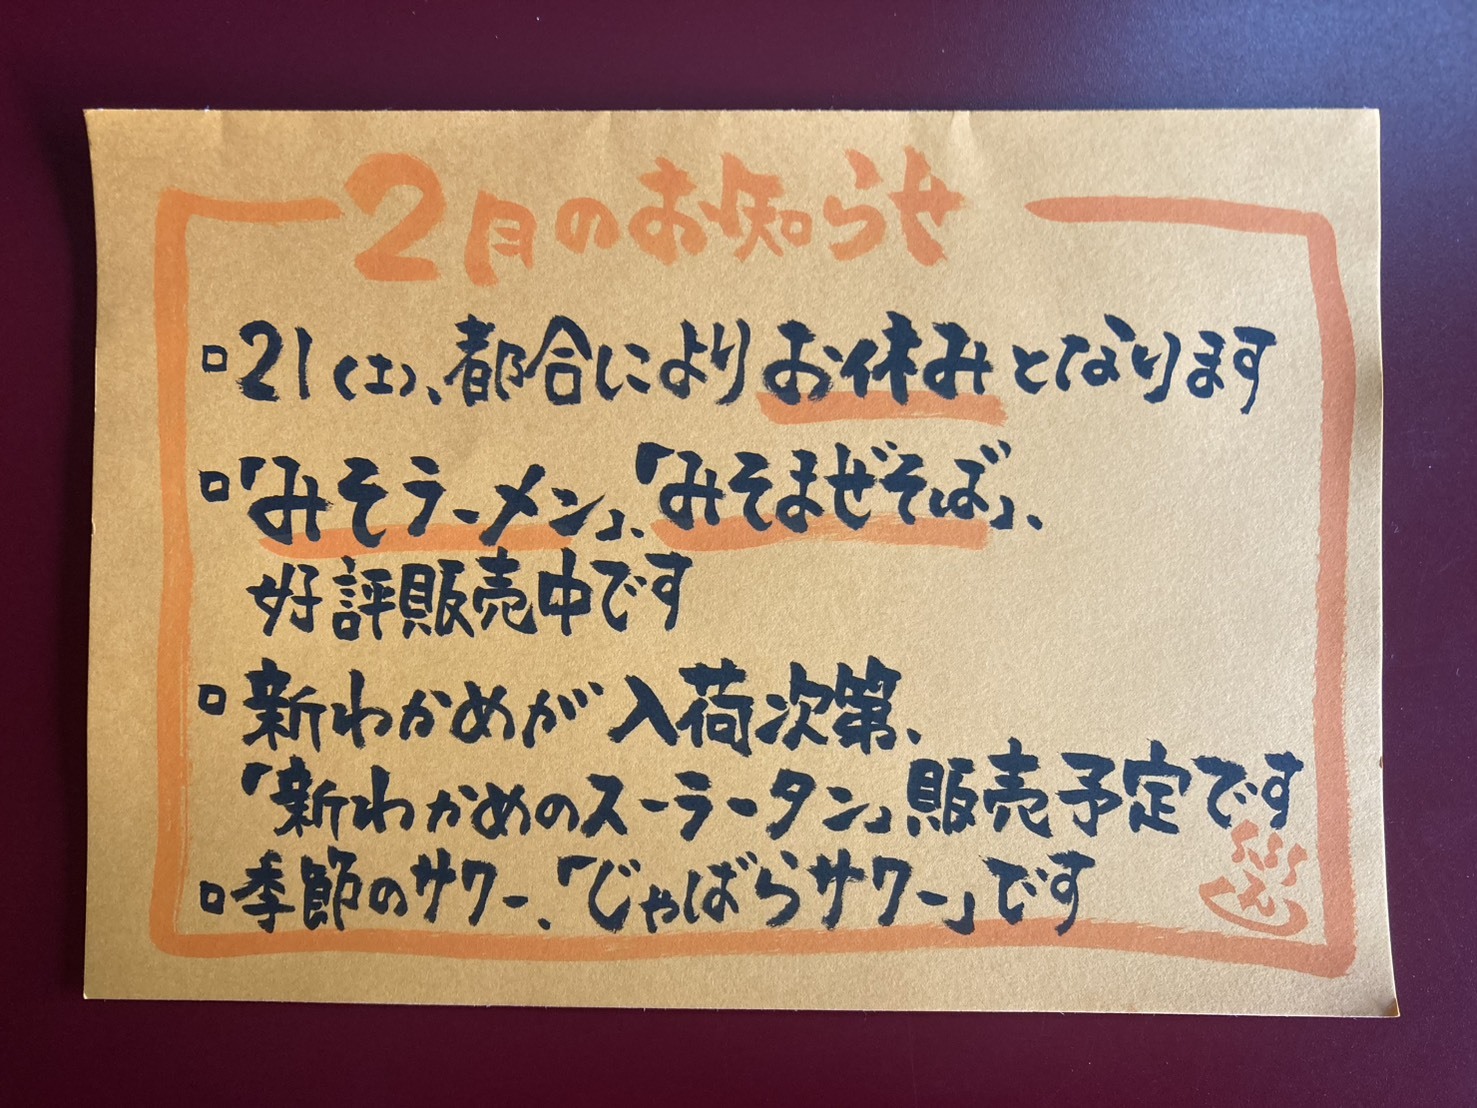 2月のお知らせ
□21(土)、都合によりお休みとなります
□「みそラーメン」、「みそまぜそば」、
好評販売中です
□新わかめが入荷次第、
「新わかめのスーラータン」販売予定です
□季節のサワー、「じゃばらサワー」です